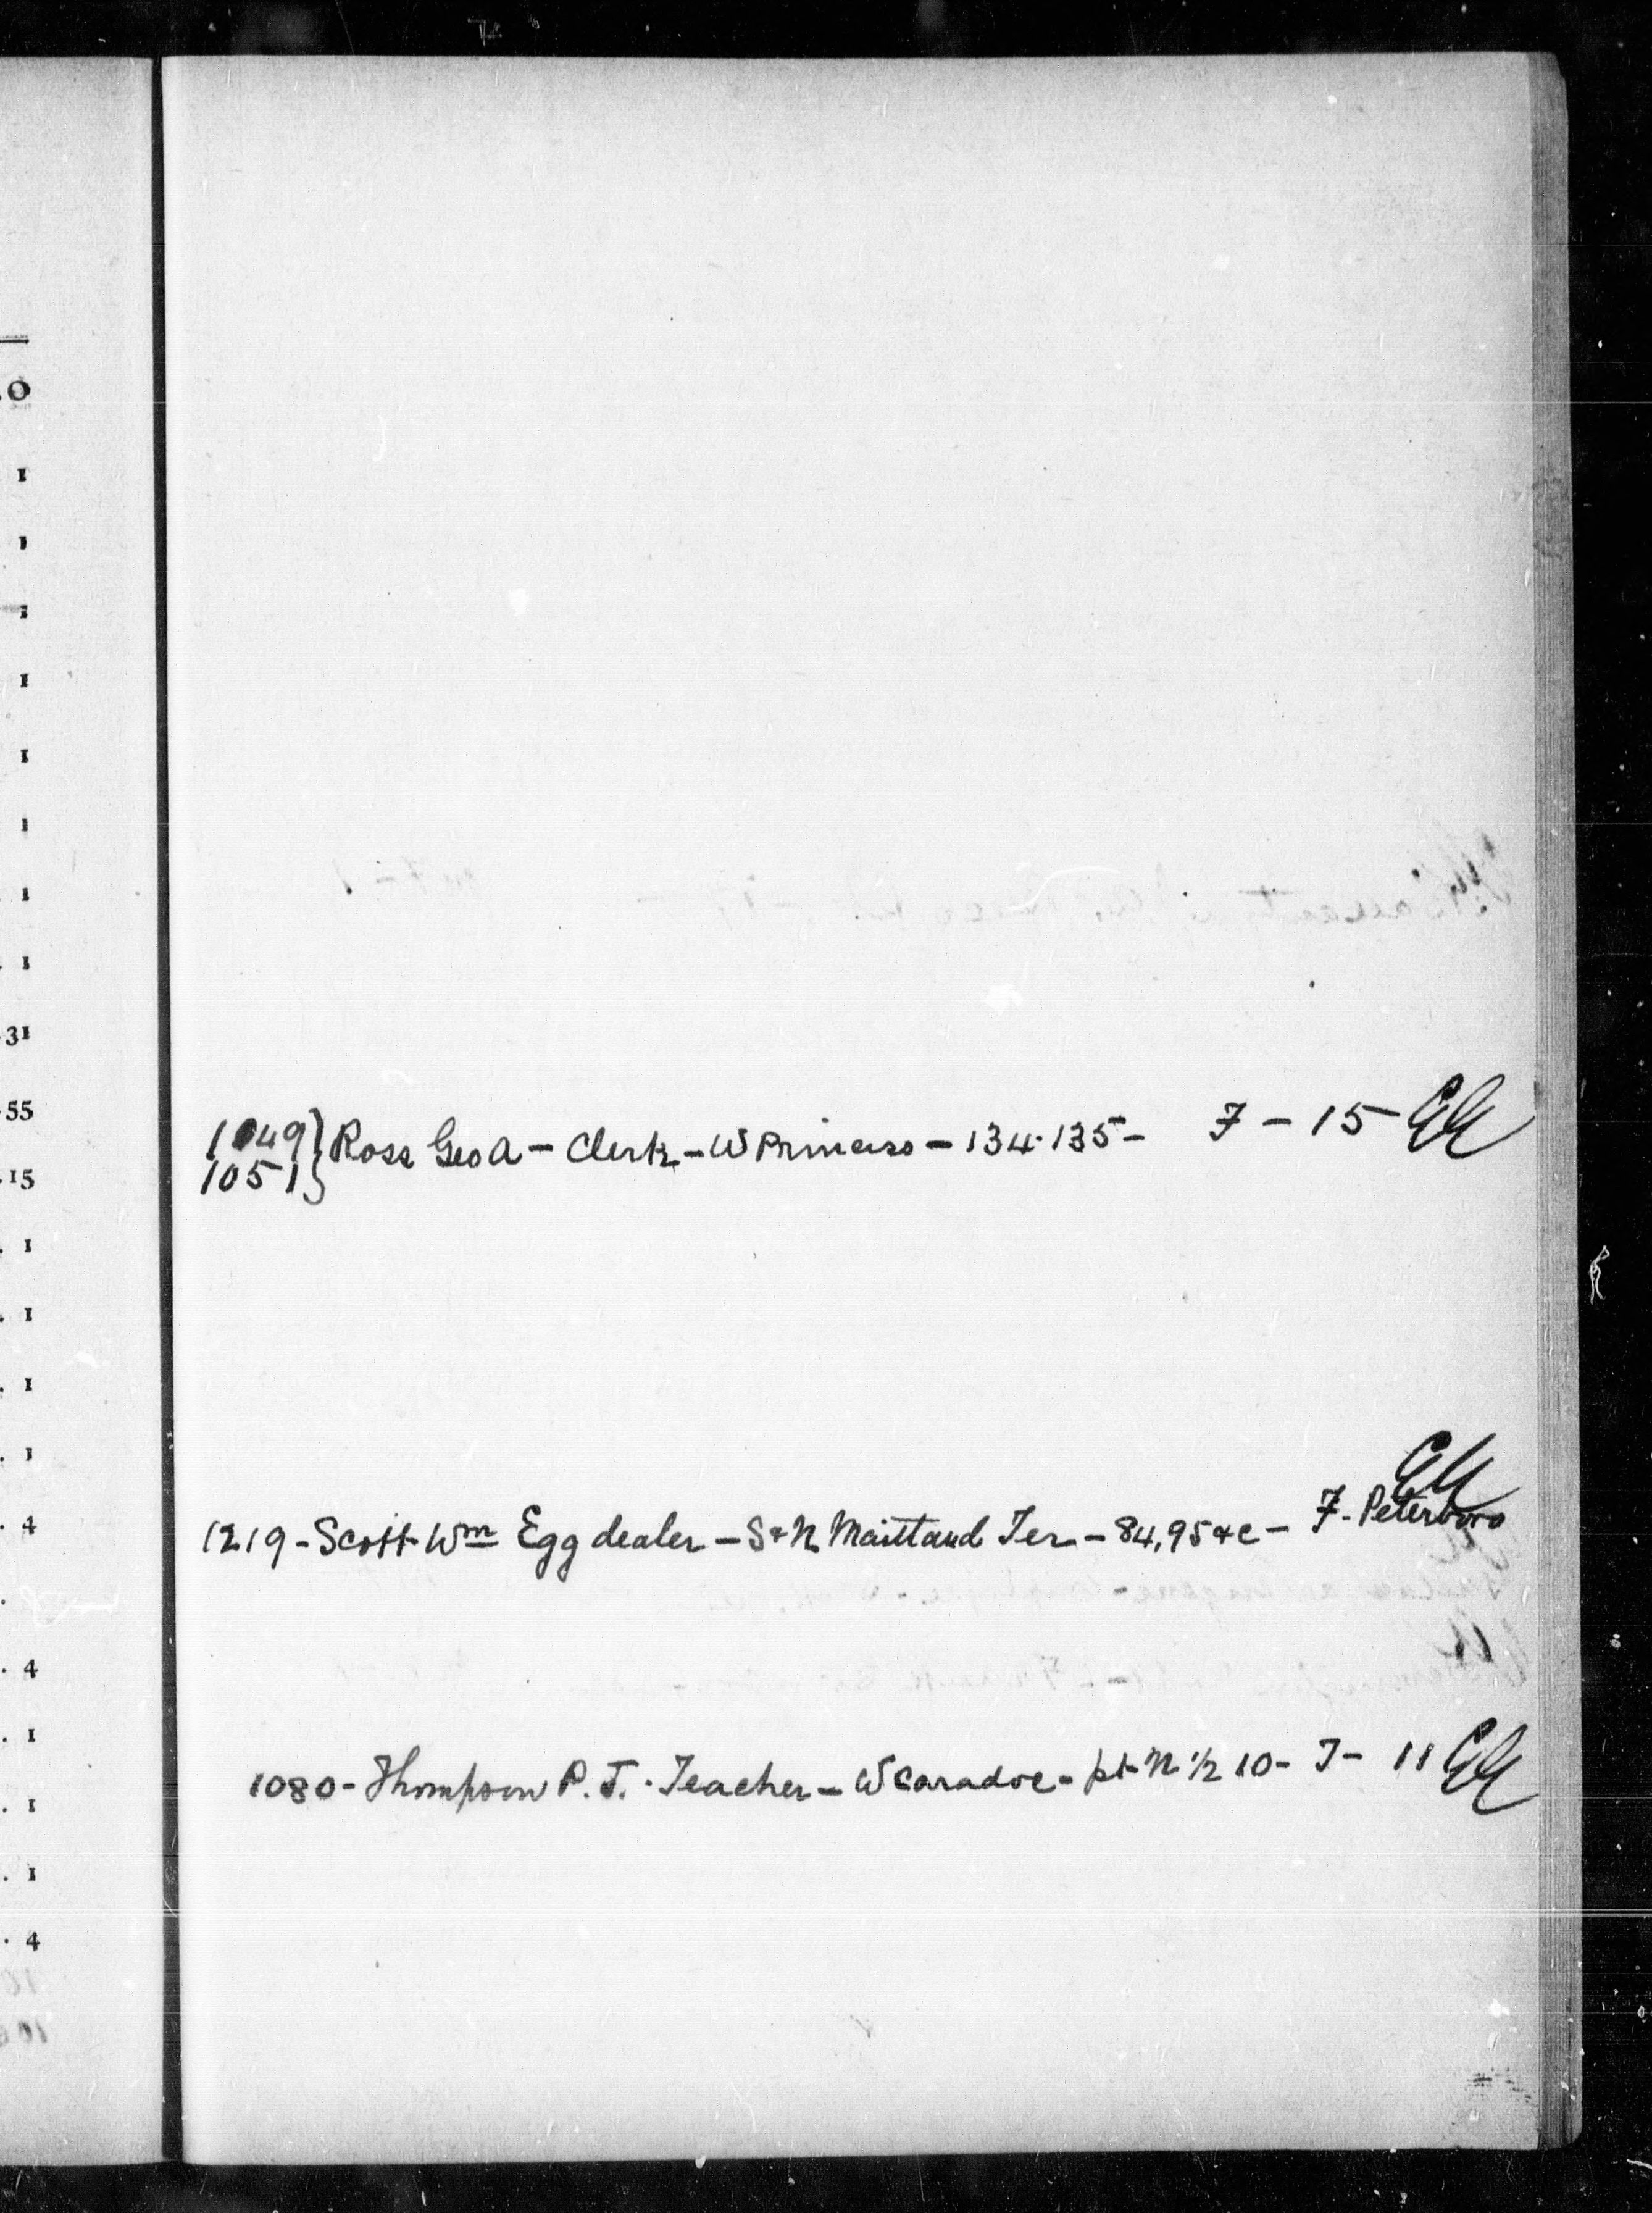 .0
1
1
1
1
1
1
1
. 1
.31
.55
.15
. 1
. 1
. 1
. 1
. 4
.
. 4
. 1
. 1
. 1
. 4
1049 } Ross Geo A - Clerk - W Princess - 134.135 - F - 15
1051 }
1219 - Scott Wm Egg dealer - S & N Maitland Ter - 84,95 &c - F - Peterboro
1080 - Thompson P. J. - Teacher - W Caradoc - pt N 1/2 10 - F - 11